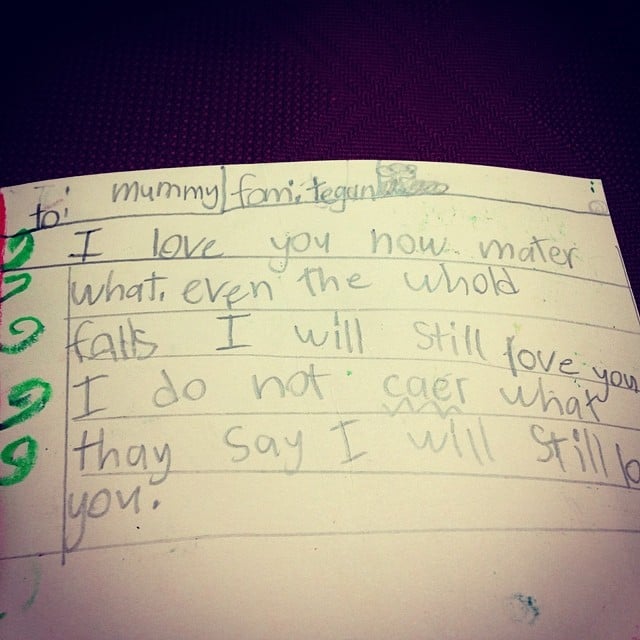 to: mummy fom: tegan
I love you now mater
what, even the whold
falls I will still love you
I do not caer what
thay say I will still lo
you.